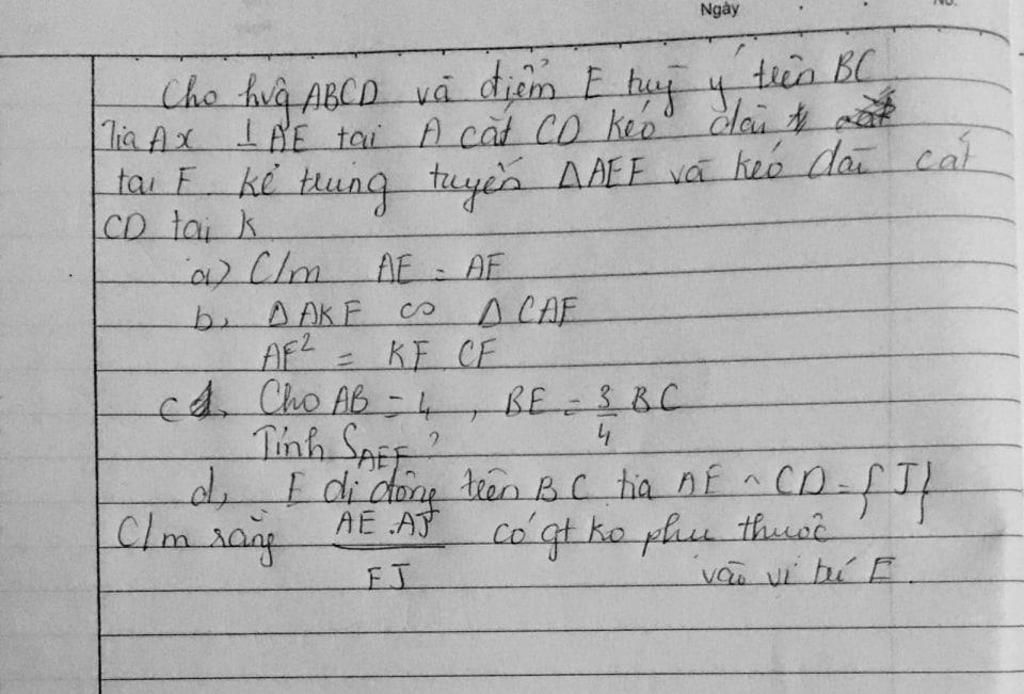 Ngày
No.
Cho hvg ABCD và điểm E tuỳ ý trên BC
Tia Ax ⊥ AE tại A cắt CD kéo dài
tại F. Kẻ trung tuyến ΔAEF và kéo dài cắt
CD tại K
a) C/m AE = AF
b, ΔAKF ∽ ΔCAF
AF² = KF CF
c, Cho AB = 4, BE = 3/4 BC
Tính S_AEF ?
d, E di động trên BC tia AE ∩ CD = {J}
C/m rằng AE.AJ / FJ có gt ko phụ thuộc
vào vị trí E.